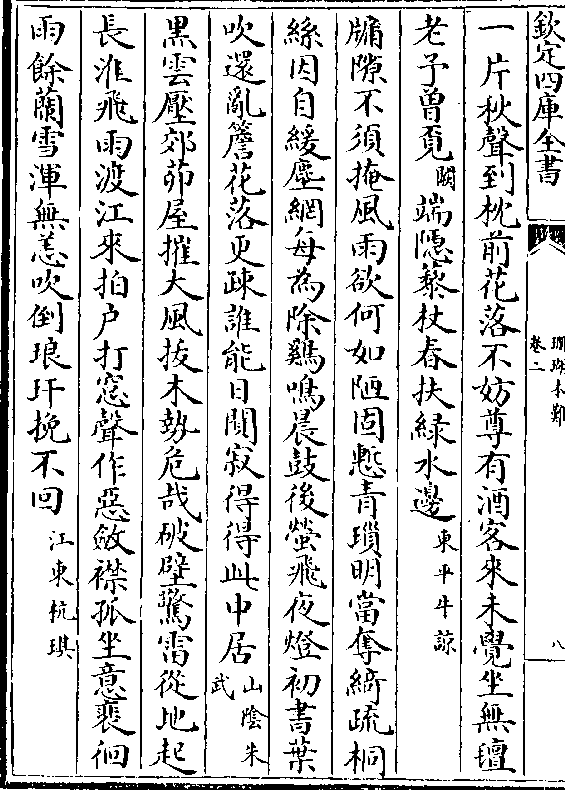 欽定四庫全書
珊瑚木難
卷二
八
一片秋聲到枕前花落不妨尊有酒客來未覺坐無氊
老子曾覔闕端隱藜杖春扶緑水邊東平牛諒
牖隙不須掩風雨欲何如陋固慙青瑣明當奪綺疏桐
絲因自緩塵網每為除鷄鳴晨鼓後螢飛夜燈初書葉
吹還亂簷花落更疎誰能日閴寂得得此中居山陰朱武
黒雲壓郊茆屋摧大風拔木勢危哉破壁驚雷從地起
長淮飛雨渡江來拍户打窓聲作惡斂襟孤坐意裵徊
雨餘蘭雪渾無恙吹倒琅玕挽不回江東杭琪